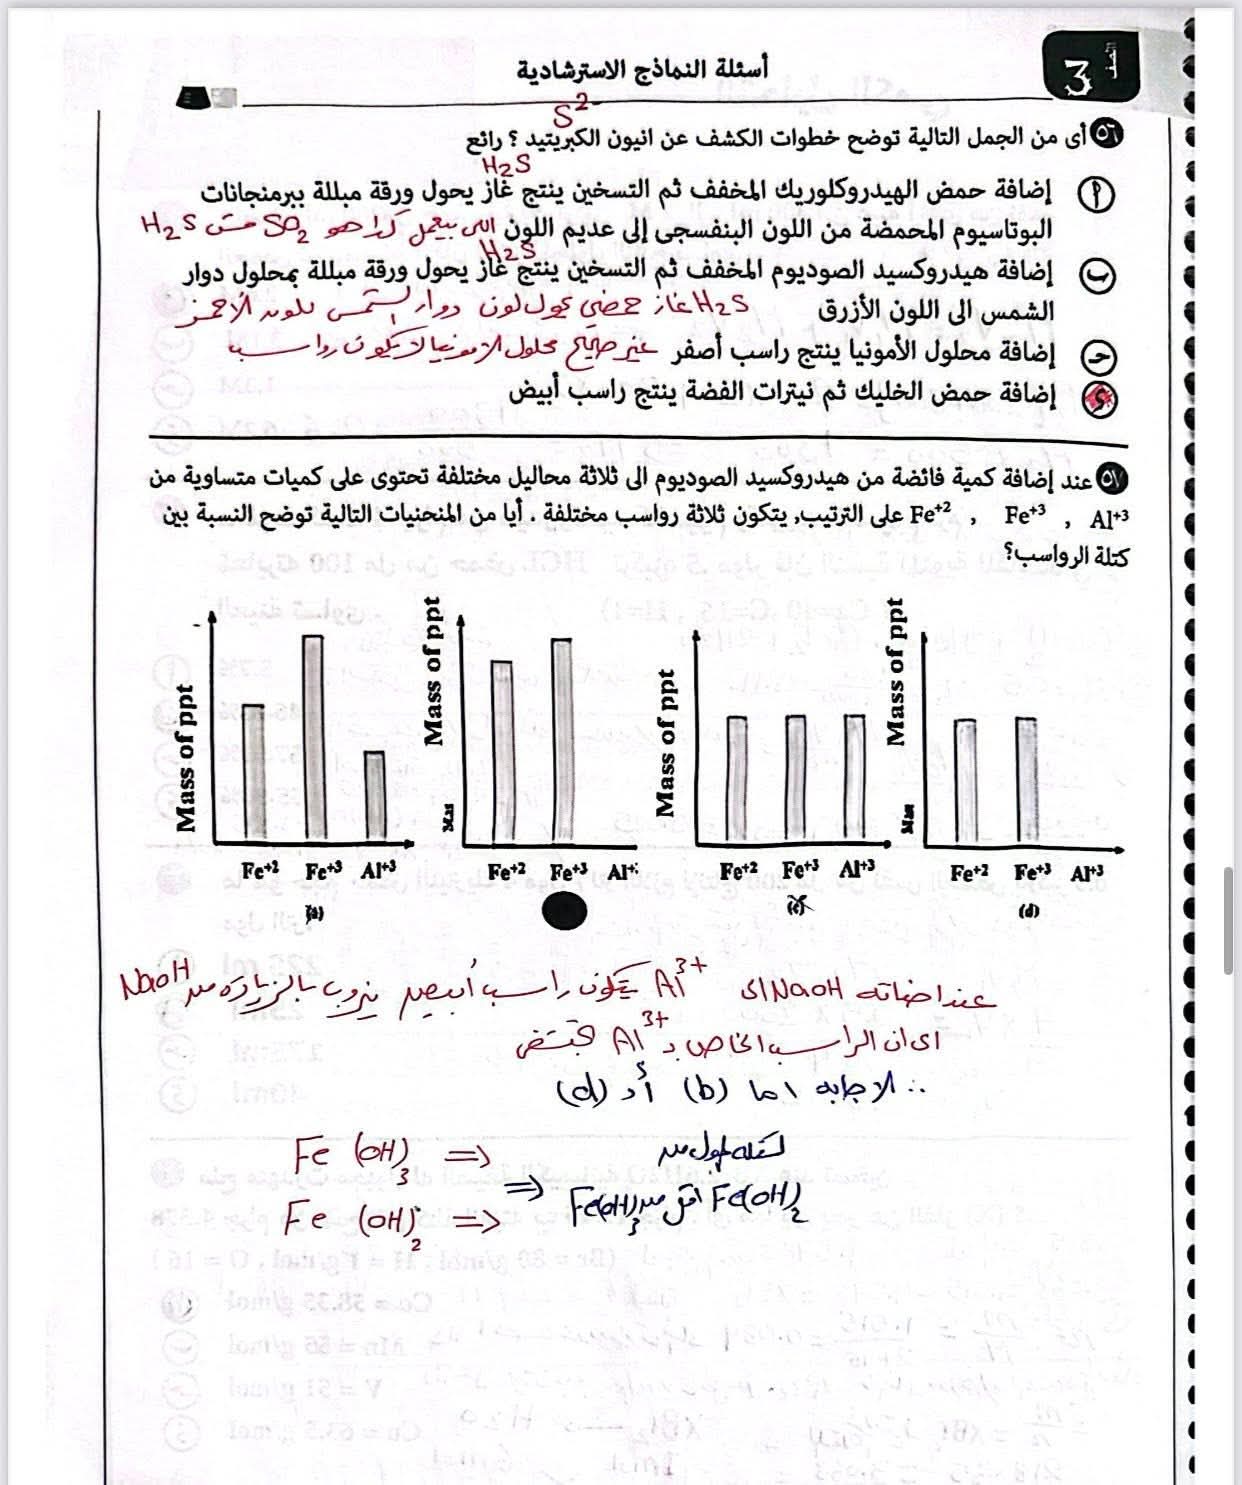 الفصل 3
أسئلة النماذج الاسترشادية
S²⁻
٥٦ أى من الجمل التالية توضح خطوات الكشف عن انيون الكبريتيد ؟ رائع
H₂S
أ إضافة حمض الهيدروكلوريك المخفف ثم التسخين ينتج غاز يحول ورقة مبللة ببرمنجانات
البوتاسيوم المحمضة من اللون البنفسجى إلى عديم اللون اللى بيعمل كدا هو SO₂ مش H₂S
H₂S
ب إضافة هيدروكسيد الصوديوم المخفف ثم التسخين ينتج غاز يحول ورقة مبللة بمحلول دوار
الشمس الى اللون الأزرق H₂S غاز حمضى يحول لون دوار الشمس للون الأحمر
حـ إضافة محلول الأمونيا ينتج راسب أصفر غير صحيح محلول الامونيا لا يكون رواسب
د إضافة حمض الخليك ثم نيترات الفضة ينتج راسب أبيض
٥٧ عند إضافة كمية فائضة من هيدروكسيد الصوديوم الى ثلاثة محاليل مختلفة تحتوى على كميات متساوية من
Al⁺³ , Fe⁺³ , Fe⁺² على الترتيب, يتكون ثلاثة رواسب مختلفة . أيا من المنحنيات التالية توضح النسبة بين
كتلة الرواسب؟
Mass of ppt Mass of ppt Mass of ppt Mass of ppt
Mass Mass
Fe⁺² Fe⁺³ Al⁺³ Fe⁺² Fe⁺³ Al⁺³ Fe⁺² Fe⁺³ Al⁺³ Fe⁺² Fe⁺³ Al⁺³
(a) (c) (d)
عند اضافة NaOH الى Al³⁺ يتكون راسب أبيض يذوب بالزيادة من NaOH
اى ان الراسب الخاص بـ Al³⁺ يختفى
∴ الاجابه اما (b) أو (d)
Fe (OH)₃ ⇒
Fe (OH)₂ ⇒
⇒
Fe(OH)₂ اقل من Fe(OH)₃